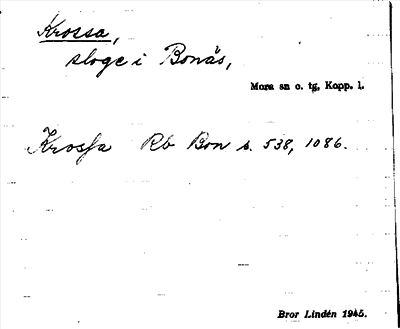 Krossa,
sloge i Bonäs,
Mora sn o. tg, Kopp. l.
Krosſa Rb Bon s. 538, 1086.
Bror Lindén 1945.